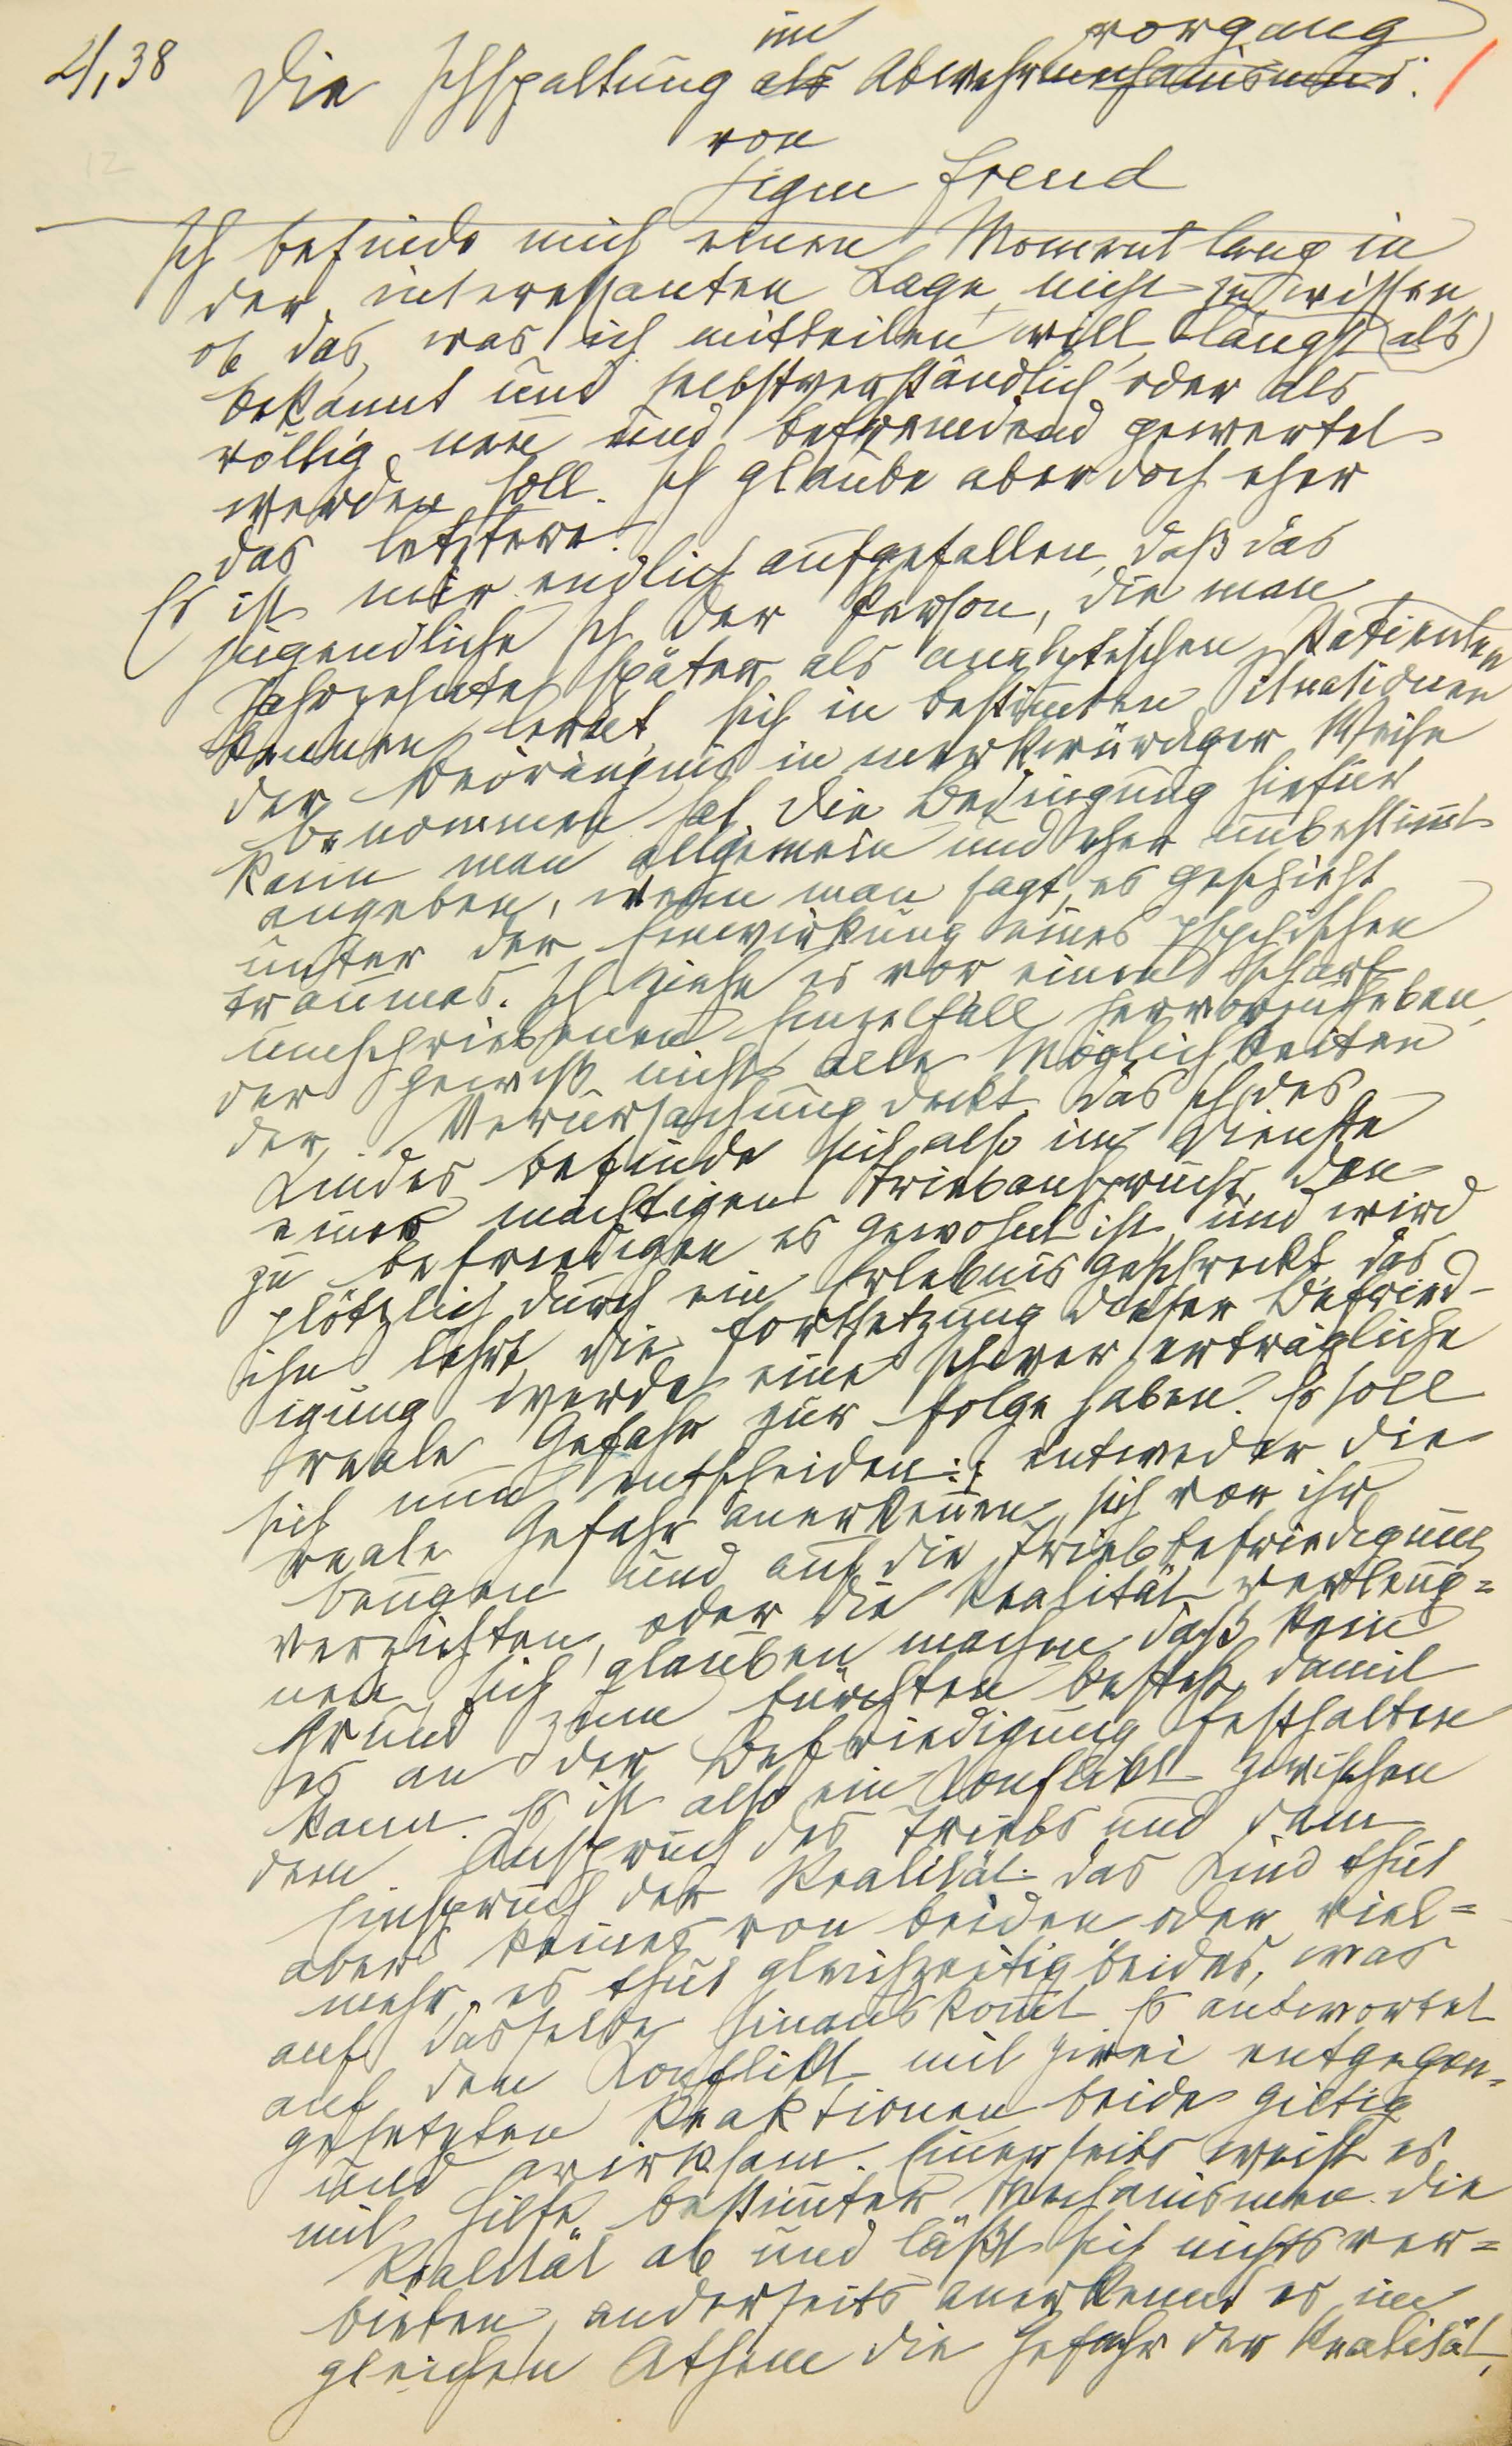 2/1,38
im vorgang
Die Ichspaltung als Abwehrmechanismus.
von
Sigm Freud
Ich befinde mich einen Moment lang in
der interessanten Lage nicht zu wissen,
ob das, was ich mitteilen will, längst (als)
bekannt und selbstverständlich oder als
völlig neu und befremdend gewertet
werden soll. Ich glaube aber doch eher
das letztere.
Es ist mir endlich aufgefallen, daß das
jugendliche Ich der Person, die man
Jahrzehnte später als analytischen Patienten
kennen lernt, sich in bestimmten Situationen
der Bedrängnis in merkwürdiger Weise
benommen hat. Die Bedingung hiefür
kann man allgemein und eher unbestimmt
angeben, wenn man sagt, es geschieht
unter der Einwirkung eines psychischen
Traumas. Ich ziehe es vor einen scharf
umschriebenen Einzelfall hervorzuheben,
der gewiß nicht alle Möglichkeiten
der Verursachung deckt. Das Ich des
Kindes befinde sich also im Dienste
eines mächtigen Triebanspruchs, den
zu befriedigen es gewohnt ist, und wird
plötzlich durch ein Erlebnis geschreckt, das
ihn lehrt, die Fortsetzung dieser Befried-
igung werde eine schwer erträgliche
reale Gefahr zur Folge haben. Es soll
sich nun entscheiden: entweder die
reale Gefahr anerkennen, sich vor ihr
beugen und auf die Triebbefriedigung
verzichten, oder die Realität verleug=
nen, sich glauben machen, daß kein
Grund zum Fürchten besteht, damit
es an der Befriedigung festhalten
kann. Es ist also ein Conflikt zwischen
dem Anspruch des Triebs und dem
Einspruch der Realität. Das Kind thut
aber keines von beiden oder viel=
mehr, es thut gleichzeitig beides, was
auf dasselbe hinauskomt. Es antwortet
auf den Konflikt mit zwei entgegen=
gesetzten Reaktionen, beide giltig
und wirksam. Einerseits weist es
mit Hilfe bestimmter Mechanismen die
Realität ab und läßt sich nichts ver=
bieten, anderseits anerkennt es im
gleichen Athem die Gefahr der Realität,